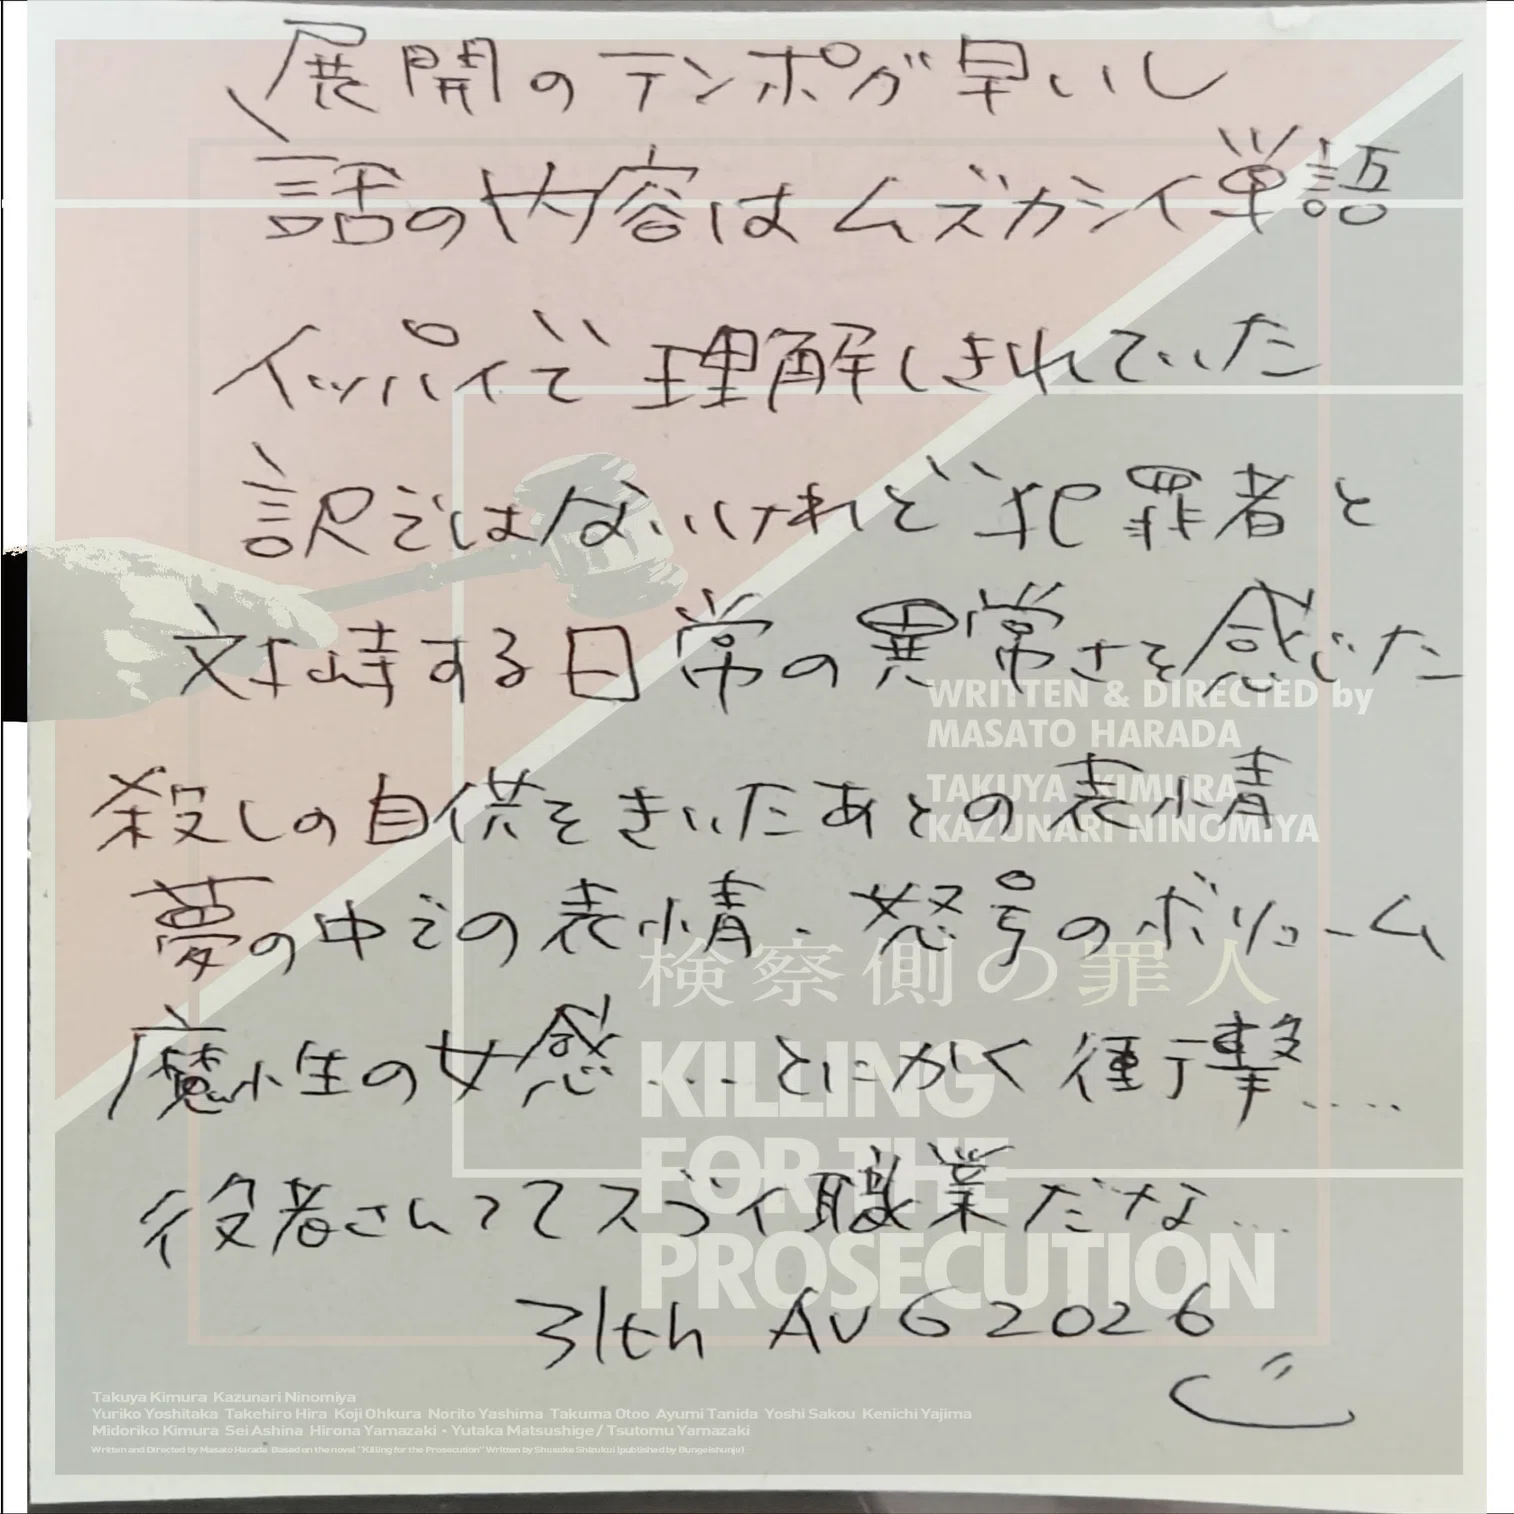 展開のテンポが早いし
話の内容はムズカシイ単語
イッパイで理解しきれていた
訳ではないけれど犯罪者と
対峙する日常の異常さを感じた
WRITTEN & DIRECTED by
MASATO HARADA
殺しの自供をきいたあとの表情
TAKUYA KIMURA
KAZUNARI NINOMIYA
夢の中での表情.怒号のボリューム
検察側の罪人
魔性の女感....とにかく衝撃....
KILLING
FOR THE
役者さんってスゴイ職業だな...
PROSECUTION
31th AUG 2026
Takuya Kimura Kazunari Ninomiya
Yuriko Yoshitaka Takehiro Hira Koji Ohkura Norito Yashima Takuma Otoo Ayumi Tanida Yoshi Sakou Kenichi Yajima
Midoriko Kimura Sei Ashina Hirona Yamazaki • Yutaka Matsushige / Tsutomu Yamazaki
Written and Directed by Masato Harada Based on the novel "Killing for the Prosecution" Written by Shusuke Shizukui (published by Bungeishunju)